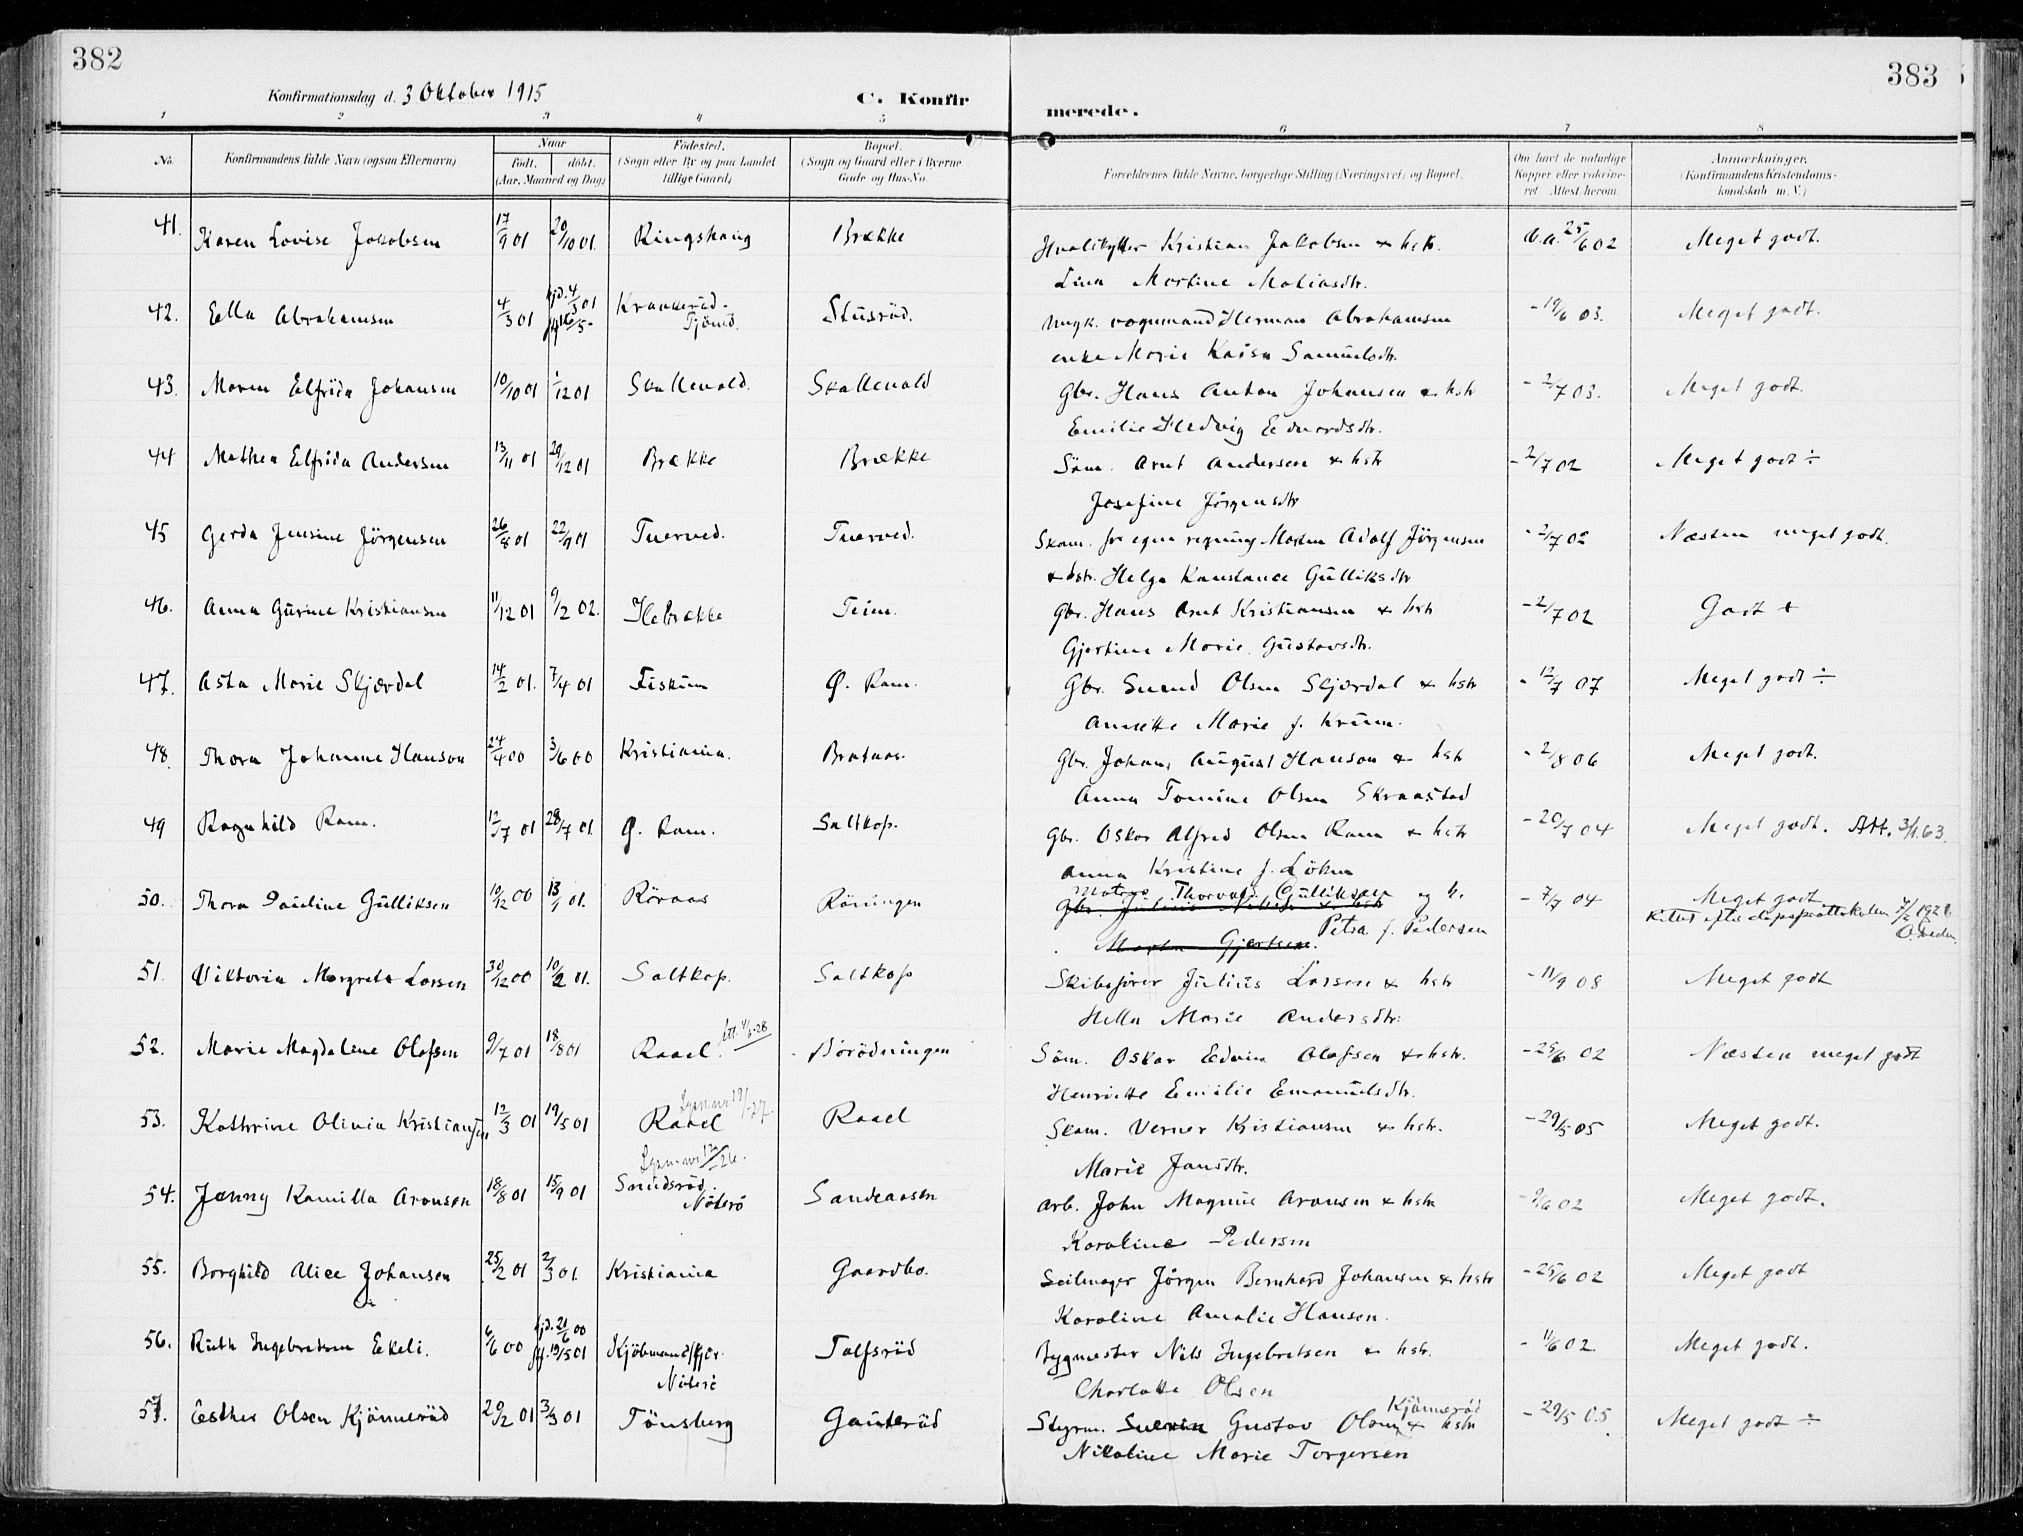 382
383
Konfirmationsdag d. 3 Oktober 1915
C. Konfir
merede.
1 2 3 4 5 6 7 8
No. Konfirmandens fulde Navn (ogsaa Efternavn) Naar født. døbt. (Aar, Maaned og Dag) Fødested. (Sogn eller By og paa Landet tillige Gaard) Bopæl. (Sogn og Gaard eller i Byerne Gade og Hus-No. Forældrenes fulde Navne, borgerlige Stilling (Næringsvei) og Bopæl. Om havt de naturlige Kopper eller vaccineret. Attest herom. Anmærkninger. (Konfirmandens Kristendomskundskab m. V.)
41. Karen Lovise Jakobsen 17/9 01 20/10 01. Ringshaug Brække Hvalskytter Kristian Jakobsen & hstr. v.a. 25/6 02 Meget godt.
Lina Martine Matiasdtr.
42. Ella Abrahamsen 4/3 01 hjd. 4/3 01 Stusröd. vognmand Herman Abrahamsen - 19/6 03. Meget godt.
Tjömö. enke Marie Kaisa Samuelsdtr.
43. Maren Elfrida Johansen 10/10 01 1/12 01 Skallevold. Skallevold Gbr. Hans Anton Johansen & hstr - 2/7 03. Meget godt.
Emilie Hedvig Edvardsdtr.
44 Mathea Elfrida Andersen 13/11 01 29/12 01 Brække Brække Söm. Arnt Andersen & hstr - 2/7 02 Meget godt ÷
Josefine Jörgensdtr
45 Gerda Jensine Jörgensen 26/8 01 22/9 01 Tverved. Tverved. Skom. for egen regning Morten Adolf Jörgensen - 2/7 02 Næsten meget godt.
& hstr. Helga Konstance Gulliksdtr
46. Anna Gurine Kristiansen 11/12 01 9/2 02. Teien. Gbr. Hans Arnt Kristiansen & hstr - 2/7 02 Godt +
Gjertine Marie Gustavsdtr.
47. Asta Marie Skjærdal 14/2 01. 7/4 01 Fiskum Ø. Ram. Gbr. Svend Olsen Skjærdal & hstr - 12/7 07 Meget godt ÷
Annette Marie f. Krum.
48. Thora Johanne Hanson 24/4 00 3/6 00 Kristiania. Brataas. Gbr. Johan August Hanson & hstr - 2/8 06 Meget godt.
Anna Tomine Olsen Skraastad
49 Ragnhild Ram. 12/7 01 28/7 01. Ø. Ram. Saltkop. Gbr. Oskar Alfred Olsen Ram & hstr - 20/7 04 Meget godt. Att. 3/11.63.
Anna Kristine f. Löken
50. Thora Pauline Gulliksen 10/12 00 13/1 01. Röraas Röningen Thorvald Gulliksen og h. - 7/7 04 Meget godt
Petra f. Pedersen
Gjertsen.
51. Viktoria Margrete Larsen 30/12 00 10/2 01. Saltkop. Saltkop Skibsfører Julius Larsen & hstr - 11/9 08 Meget godt
Hella Marie Andersdtr.
52. Marie Magdalene Olafsen 9/7 01 18/8 01 Raael. Söm. Oskar Edvin Olafsen & hstr. - 25/6 02 Næsten meget godt
Henriette Emilie Emanuelsdtr.
53. Kathrine Olivia Kristiansen 12/3 01 19/5 01 Raael Raael Skom. Verner Kristiansen & hstr. - 29/5 05 Meget godt.
Marie Jansdtr.
54. Jenny Kamilla Aronsen 18/8 01 15/9 01 Smidsröd. Nöterö Sandeaasen Arb. John Magnus Aronsen & hstr - 9/6 02 Meget godt.
Karoline Pedersen
55. Borghild Alice Johansen 25/2 01 2/3 01. Kristiania Gaardbo. Seilmager Jörgen Bernhard Johansen & hstr - 25/6 02 Meget godt
Karoline Amalie Hansen.
56. Ruth Ingebretsen Ekeli. 6/6 00 hjd. 21/6 00 Tolfsröd Bygmester Nils Ingebretsen & hstr. - 11/6 02. Meget godt.
19/5 01 Nöterö Charlotte Olsen
57. Esther Olsen Kjönneröd 20/2 01 3/3 01 Tönsberg Gauteröd Styrm. Gustav Olsen Kjönneröd & hstr - 29/5 05. Meget godt ÷
Nikoline Marie Torgersen